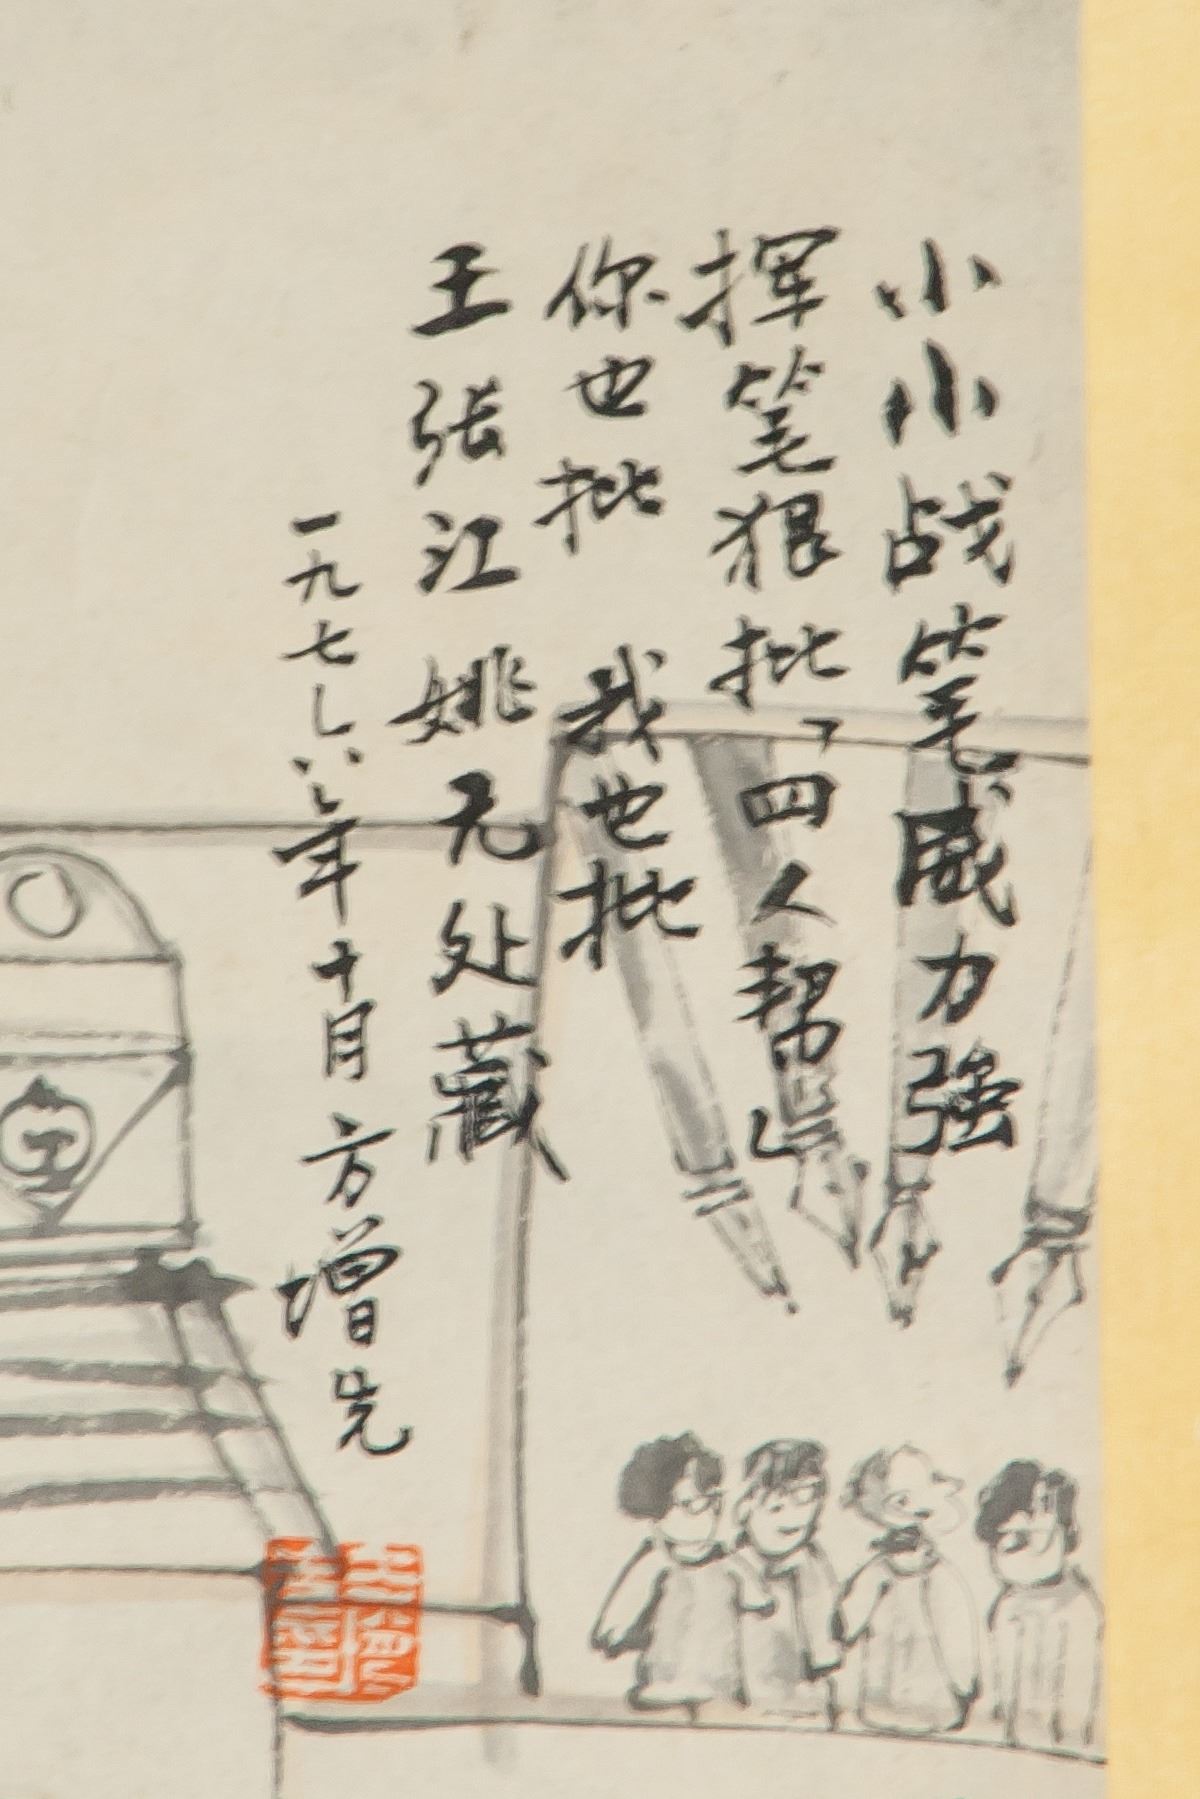 小小战笔威力强
挥笔狠批「四人帮」
你也批 我也批
王张江姚无处藏
一九七六年十月 方增先
工